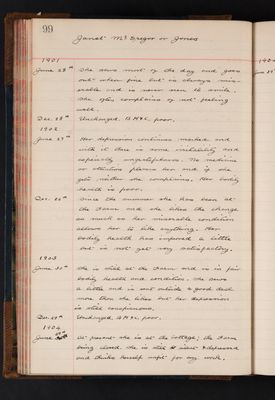 99
Janet McGregor or Jones
1901
June 28th She sews most of the day and goes
out when fine but is always mis-
erable and is never seen to smile.
She often complains of not feeling
well.
Dec. 28th Unchanged. B.H. & C. poor.
1902
June 27th Her depression continues marked and
with it there is some irritability and
especially ungratefulness. No medicine
or attention pleases her and if she
gets neither she complains. Her bodily
health is poor.
Dec. 26th Since the summer she has been at
the Farm and she likes the change
as much as her miserable condition
allows her to like anything. Her
bodily health has improved a little
but is not yet very satisfactory.
1903
June She is still at the Farm and is in fair
bodily health and condition. She sews
a little and is out outside a good deal
more than she likes but her depression
is still conspicuous.
Dec. Unchanged. B.H. & C. poor.
1904
June At present she is at the Cottage; the Farm
being closed. She is still & depressed
and thinks herself unfit for any work.